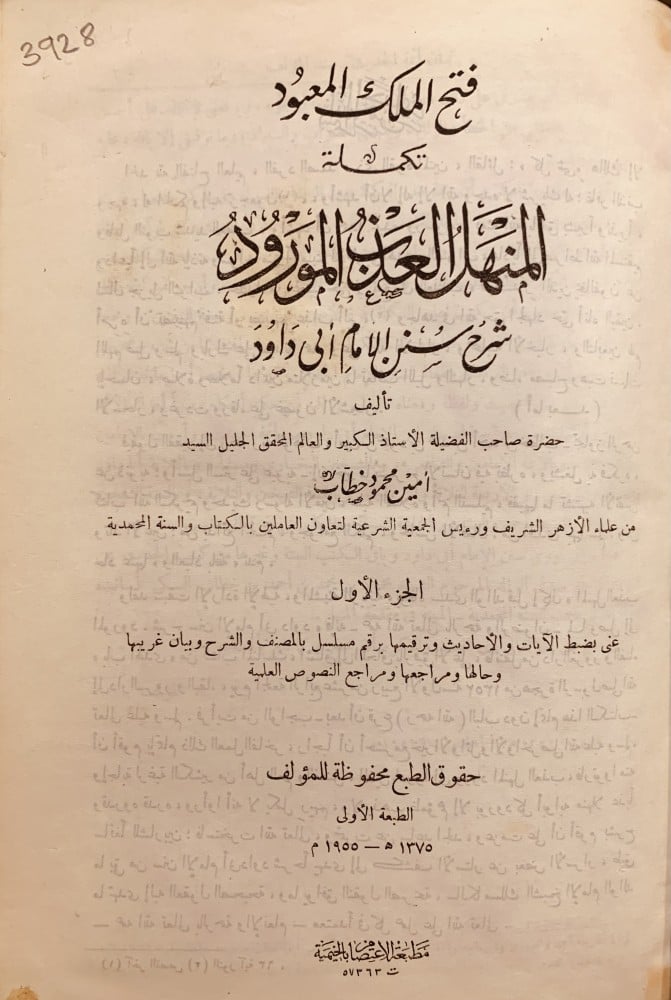 3928
فتح الملك المعبود
تكملة
المنهل العذب المورود
شرح سنن الإمام أبي داود
تأليف
حضرة صاحب الفضيلة الأستاذ الكبير والعالم المحقق الجليل السيد
أمين محمود خطاب
من علماء الأزهر الشريف ورئيس الجمعية الشرعية لتعاون العاملين بالكتاب والسنة المحمدية
الجزء الأول
عنى بضبط الآيات والأحاديث وترقيمها برقم مسلسل بالمصنف والشرح وبيان غريبها
وحالها ومراجعها ومراجع النصوص العلمية
حقوق الطبع محفوظة للمؤلف
الطبعة الأولى
١٣٧٥ هـ — ١٩٥٥ م
مطبعة الاعتصام بالخيمية
ت ٥٧٣٦٣